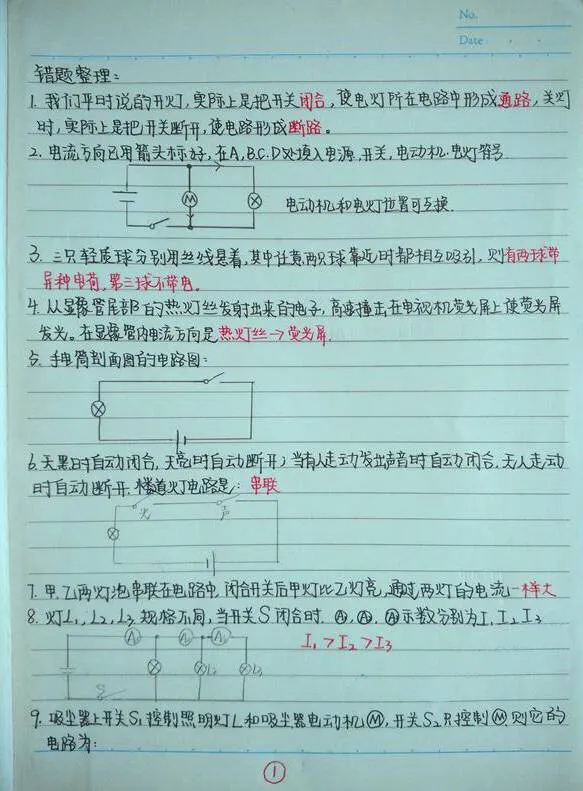 No.
Date
错题整理:
1. 我们平时说的开灯,实际上是把开关闭合,使电灯所在电路中形成通路,关灯
时,实际上是把开关断开,使电路形成断路。
2. 电流方向已用箭头标好,在A,B.C.D处填入电源.开关,电动机.电灯符号
M
电动机和电灯位置可互换.
3. 三只轻质球分别用丝线悬着,其中任意两只球靠近时都相互吸引,则有两球带
异种电荷,第三球不带电。
4. 从显像管尾部的热灯丝发射出来的电子,高速撞击在电视机荧光屏上使荧光屏
发光。在显像管内电流方向是热灯丝→荧光屏.
5. 手电筒剖面图的电路图:
6. 天黑时自动闭合,天亮时自动断开;当有人走动发出声音时自动闭合.无人走动
时自动断开.楼道灯电路是:串联
光 声
7. 甲.乙两灯泡串联在电路中.闭合开关后甲灯比乙灯亮,通过两灯的电流一样大
8. 灯L1,L2,L3规格不同,当开关S闭合时.A1,A2,A3示数分别为I1 I2 I3
I1>I2>I3
S L2 L3
9. 吸尘器上开关S1控制照明灯L和吸尘器电动机M,开关S2只控制M.则它的
电路为:
1